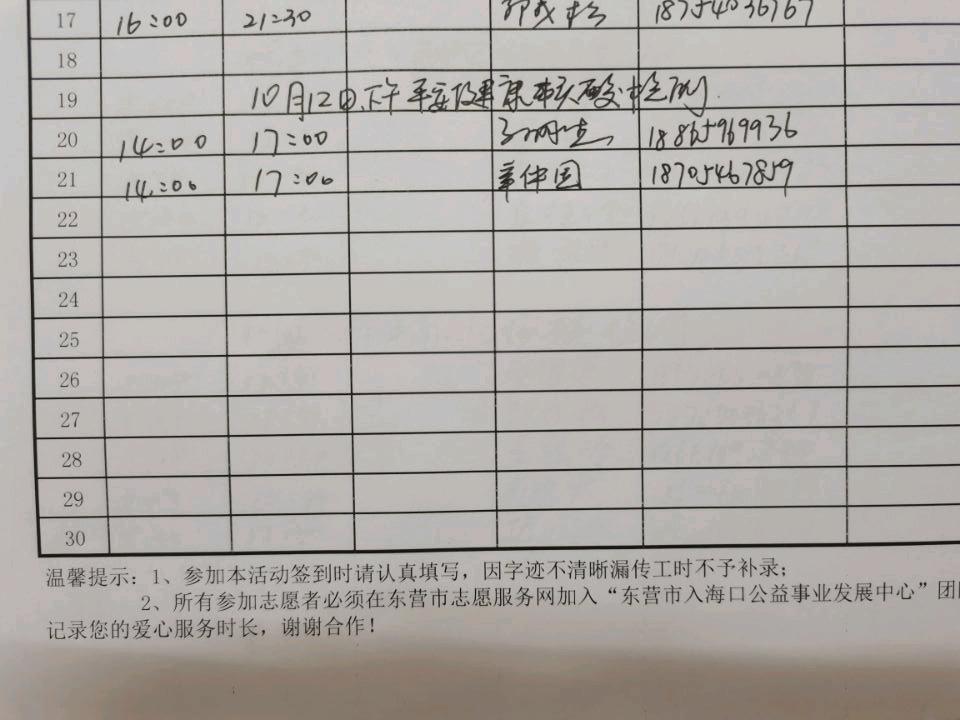 17 16:00 21:30 18754036767
18
19 10月12日下午 核酸检测
20 14:00 17:00 18865969936
21 14:00 17:00 章仲国 18705467859
22
23
24
25
26
27
28
29
30
温馨提示：1、参加本活动签到时请认真填写，因字迹不清晰漏传工时不予补录；
2、所有参加志愿者必须在东营市志愿服务网加入“东营市入海口公益事业发展中心”团
记录您的爱心服务时长，谢谢合作！